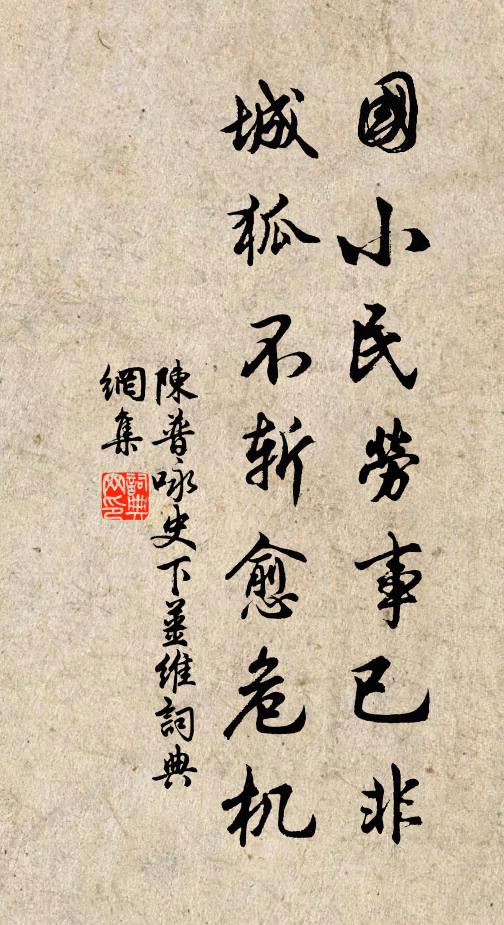 國小民勞事已非
城狐不斬愈危机
陳普咏史下薑維詞典
網集
詞典
网印